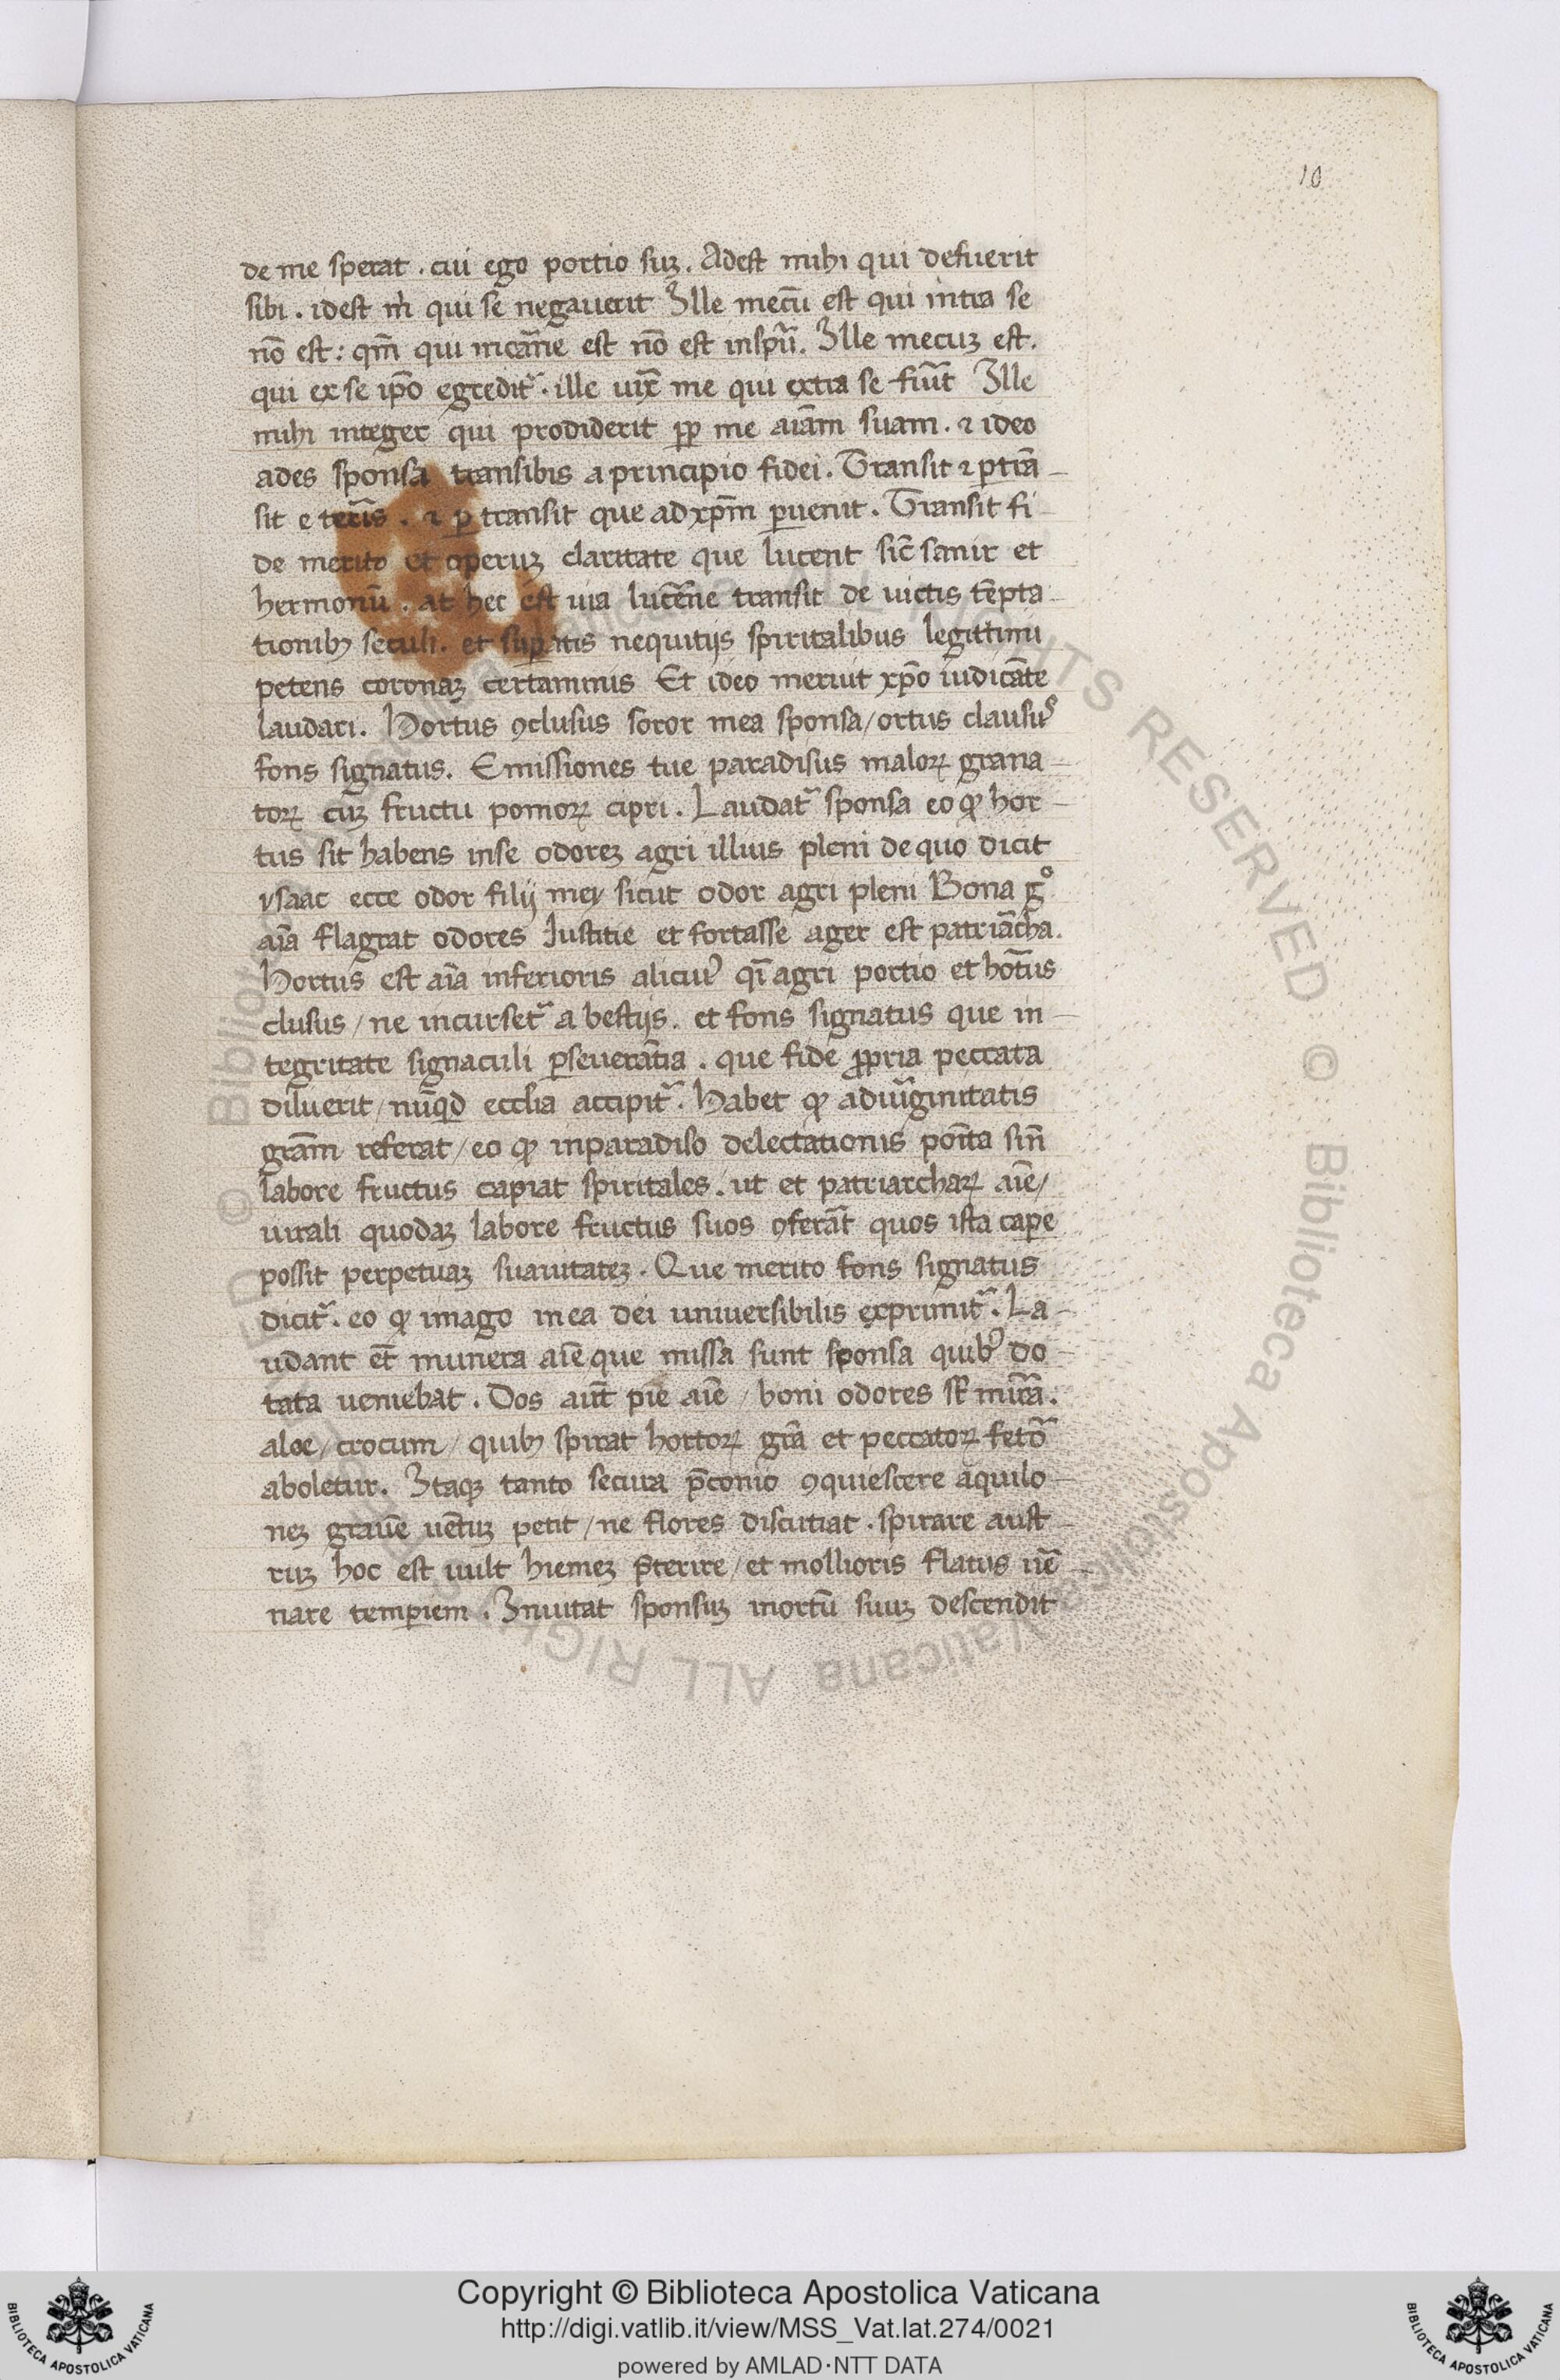 10
de me sperat . cui ego portio suꝫ . Adest mihi qui defuerit
sibi . idest m̄ qui se negauerit Ille mecū est qui intra se
nō est : qm̄ qui incār̄ne est nō est inspū . Ille mecuꝫ est .
qui ex se ip̄o egredit᷑ . ille me qui extra se Ille
mihi integer qui prodiderit ꝓp me aīam suam . ⁊ ideo
ades sponsa transibis a principio fidei . Transit ⁊ ꝑtrā-
sit e terris . ⁊ ꝑ transit que ad xp̄m ꝑuenit . Transit fi-
de merito et operuꝫ claritate que lucent sic̄ sanir et
hermoniū . at hec est uia lucērne transit de uictis tēpta-
tionibꝫ seculi . et suꝑatis nequitijs spiritalibus legittimi
petens coronaꝫ certaminis Et ideo meruit xp̄o iudicāte
laudari . Hortus ꝯclusus soror mea sponsa / ortus clausus
fons signatus . Emissiones tue paradisus maloꝝ grana-
toꝝ cuꝫ fructu pomoꝝ cipri . Laudat᷑ sponsa eo ꝙ hor-
tus sit habens inse odoreꝫ agri illius pleni dequo dicit
ysaac ecce odor filij mey sicut odor agri pleni Bona gͦ
aīa flagrat odores Iustitie et fortasse ager est patriārcha .
Hortus est aīa inferioris alicuiꝰ qī agri portio et hortus
clusus / ne incurset᷑ a bestijs . et fons signatus que in-
tegritate signaculi ꝑseuerātia . que fide ꝓpria peccata
diluerit / nūqd ecclīa accipit᷑ . Habet ꝙ aduirginitatis
grām referat / eo ꝙ inparadiso delectationis poīta sin̄
labore fructus capiat spiritales . ut et patriarchaꝝ aīe /
uirali quodaꝫ labore fructus suos ꝯferāt quos ista cape
possit perpetuaꝫ suauitateꝫ . Que merito fons signatus
dicit᷑ . eo ꝙ imago in ea dei uniuersibilis exprimit᷑ . La-
udant et̄ munera aīe que missa sunt sponsa quibꝰ do-
tata ueniebat . Dos aut̄ pie aīe / boni odores st̄ mirrā .
aloe / crocum / quibꝫ spirat hortoꝝ grā et peccatoꝝ feto᷑
aboletur . Itaqꝫ tanto secura p̄conio ꝯquiescere aquilo-
neꝫ grauē uētuꝫ petit / ne flores discutiat . spirare aust-
ruꝫ hoc est uult hiemeꝫ p̄terire / et mollioris flatus uē-
nare temꝑiem . Inuitat sponsuꝫ inortū suuꝫ descendit
Copyright © Biblioteca Apostolica Vaticana
http://digi.vatlib.it/view/MSS_Vat.lat.274/0021
powered by AMLAD·NTT DATA